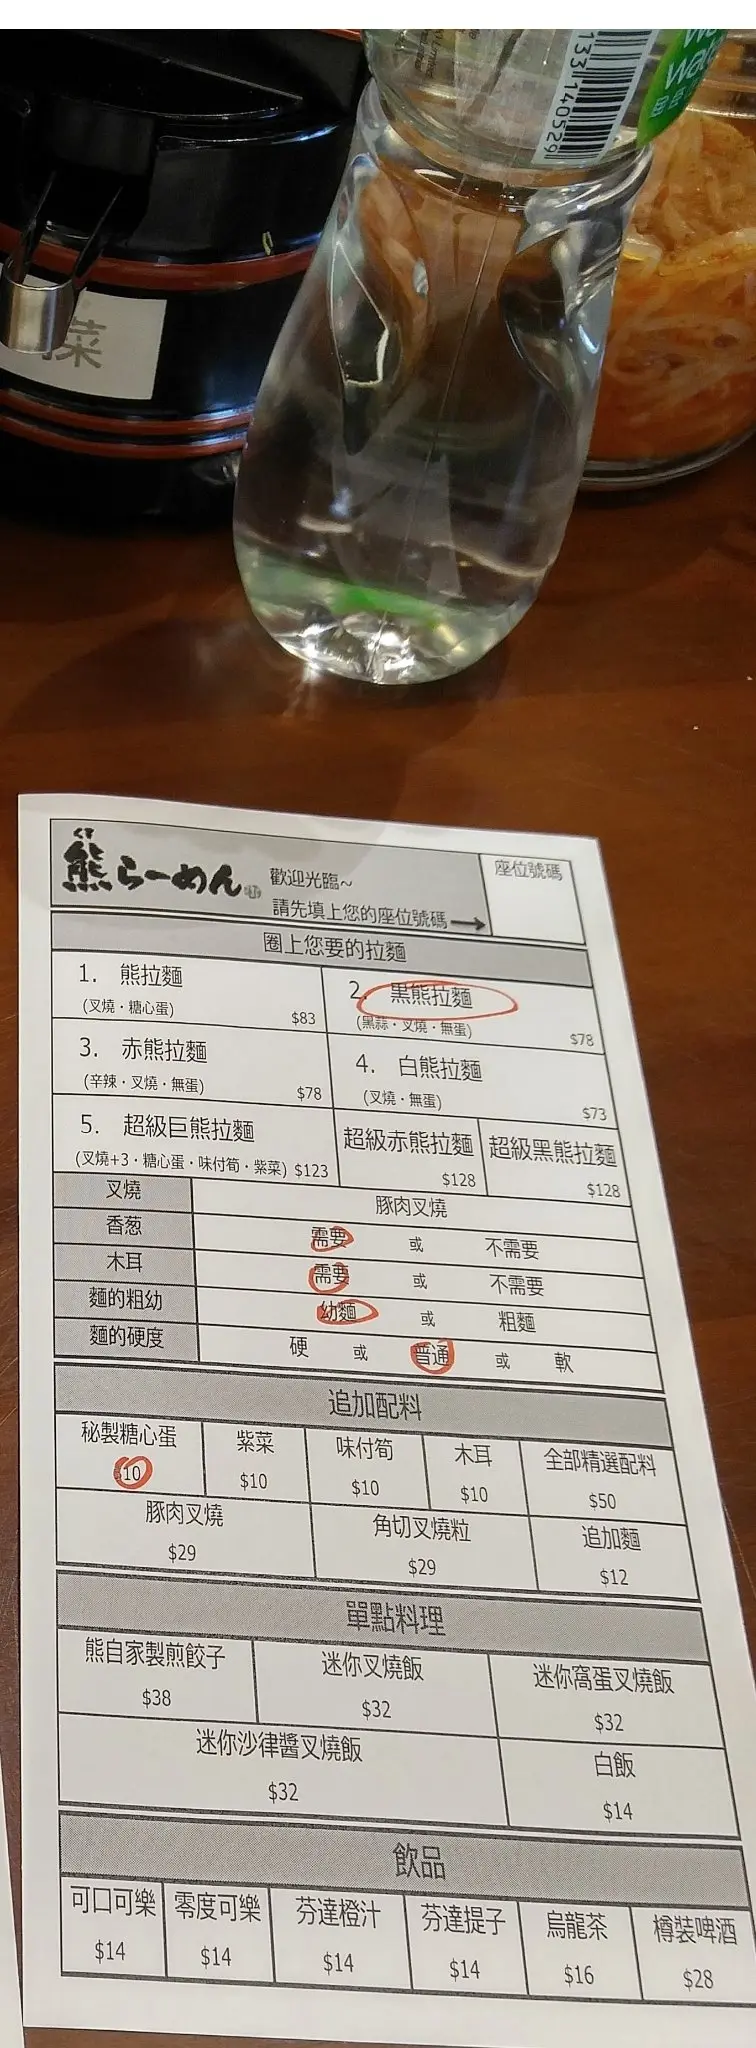 133 140529
菜
くま
熊らーめん
歡迎光臨~
請先填上您的座位號碼
座位號碼
圈上您要的拉麵
1. 熊拉麵
(叉燒・糖心蛋) $83
2. 黒熊拉麵
(黑蒜・叉燒・無蛋) $78
3. 赤熊拉麵
(辛辣・叉燒・無蛋) $78
4. 白熊拉麵
(叉燒・無蛋) $73
5. 超級巨熊拉麵
(叉燒+3・糖心蛋・味付筍・紫菜) $123
超級赤熊拉麵
$128
超級黑熊拉麵
$128
叉燒 豚肉叉燒
香葱 需要 或 不需要
木耳 需要 或 不需要
麵的粗幼 幼麵 或 粗麵
麵的硬度 硬 或 普通 或 軟
追加配料
秘製糖心蛋 紫菜 味付筍 木耳 全部精選配料
$10 $10 $10 $10 $50
豚肉叉燒 角切叉燒粒 追加麵
$29 $29 $12
單點料理
熊自家製煎餃子 迷你叉燒飯 迷你窩蛋叉燒飯
$38 $32 $32
迷你沙律醬叉燒飯 白飯
$32 $14
飲品
可口可樂 零度可樂 芬達橙汁 芬達提子 烏龍茶 樽裝啤酒
$14 $14 $14 $14 $16 $28